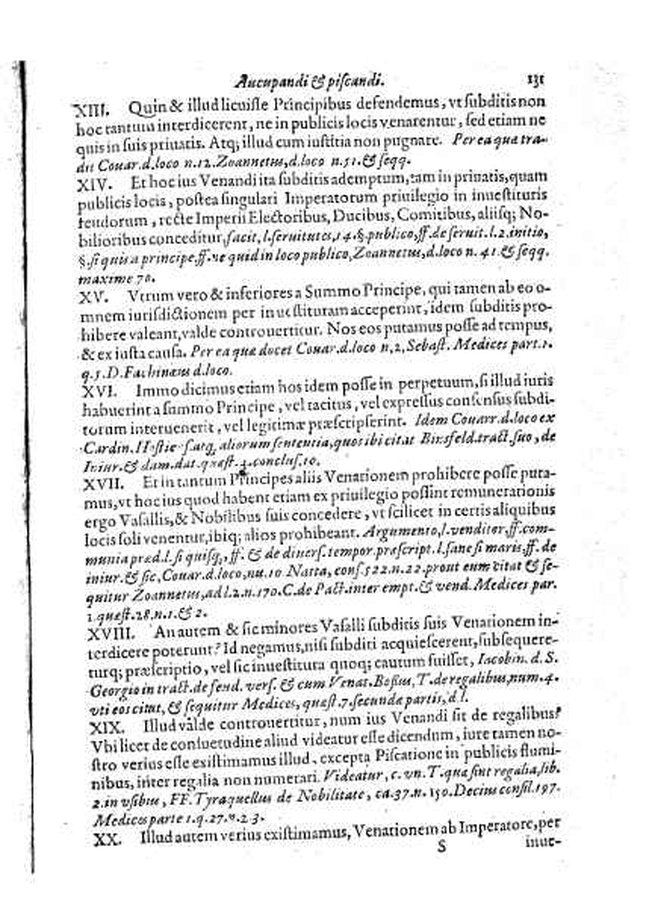 Aucupandi & piscandi. 131
XIII. Quin & illud licuisse Principibus defendemus, vt subditis non
hoc tantum interdicerent, ne in publicis locis venarentur, sed etiam ne
quis in suis priuatis. Atq; illud cum iustitia non pugnare. Per ea quæ tra-
dit Couar. d. loco n. 12. Zoannetus, d. loco n. 51. & seqq.
XIV. Et hoc ius Venandi ita subditis ademptum, tam in priuatis, quam
publicis locis, postea singulari Imperatorum priuilegio in inuestituris
feudorum, recte Imperii Electoribus, Ducibus, Comitibus, aliisq; No-
bilioribus conceditur, facit, l. seruitutes, 14. §. publico, ff. de seruit. l. 2. initio,
§. si quis a principe, ff. ne quid in loco publico, Zoannetus, d. loco n. 41. & seqq.
maxime 70.
XV. Vtrum vero & inferiores a Summo Principe, qui tamen ab eo o-
mnem iurisdictionem per inuestituram acceperint, idem subditis pro-
hibere valeant, valde controuertitur. Nos eos putamus posse ad tempus,
& ex iusta causa. Per ea quæ docet Couar. d. loco n, 2, Sebast. Medices part. 1.
q. 5. D. Fachinæus d. loco.
XVI. Immo dicimus etiam hos idem posse in perpetuum, si illud iuris
habuerint a summo Principe, vel tacitus, vel expressus consensus subdi-
torum interuenerit, vel legitimæ præscripserint. Idem Couarr. d. loco ex
Cardin. Hostiens. atq, aliorum sententia, quos ibi citat Binsfeld. tract. suo, de
Iniur. & dam. dat. quæst. 4. conclus. 10.
XVII. Et in tantum Principes aliis Venationem prohibere posse puta-
mus, vt hoc ius quod habent etiam ex priuilegio possint remunerationis
ergo Vasallis, & Nobilibus suis concedere, vt scilicet in certis aliquibus
locis soli venentur, ibiq; alios prohibeant. Argumento, l. venditor, ff. com-
munia præd. l. si quisq,, ff. & de diuers. tempor. præscript. l. sane si maris, ff. de
iniur. & sic, Couar. d. loco, nu. 10 Natta, cons. 522. n. 22. prout eum citat & se-
quitur Zoannetus, ad l. 2. n. 170. C. de Pact. inter empt. & vend. Medices par.
1. quæst. 28. n. 1. & 2.
XVIII. An autem & sic minores Vasalli subditis suis Venationem in-
terdicere poterunt? Id negamus, nisi subditi acquiescerent, subsequere-
turq; præscriptio, vel sic inuestitura quoq; cautum fuisset, Iacobin. d. S.
Georgio in tract. de feud. vers. & cum Venat. Bossius, T. de regalibus, num. 4.
vti eos citat, & sequitur Medices, quæst. 7. secundæ partis, d. l.
XIX. Illud valde controuertitur, num ius Venandi sit de regalibus?
Vbi licet de consuetudine aliud videatur esse dicendum, iure tamen no-
stro verius esse existimamus illud, excepta Piscatione in publicis flumi-
nibus, inter regalia non numerari. Videatur, c. vn. T. quæ sint regalia, lib.
2. in vsibus, FF. Tyraquellus de Nobilitate, ca. 37. n. 150. Decius consil. 197.
Medices parte 1. q. 27. n. 23.
XX. Illud autem verius existimamus, Venationem ab Imperatore, per
S inue-